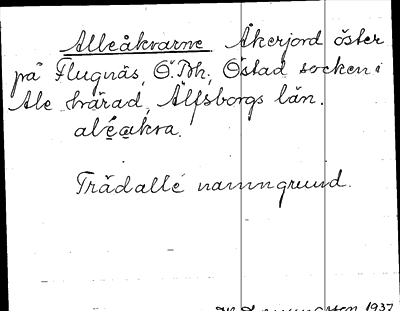 Alleåkrarne Åkerjord öster
på Flugnäs, Ö.Bh., Östad socken i
Ale härad, Älfsborgs län.
aléakra.
Trädallé namngrund.
1937